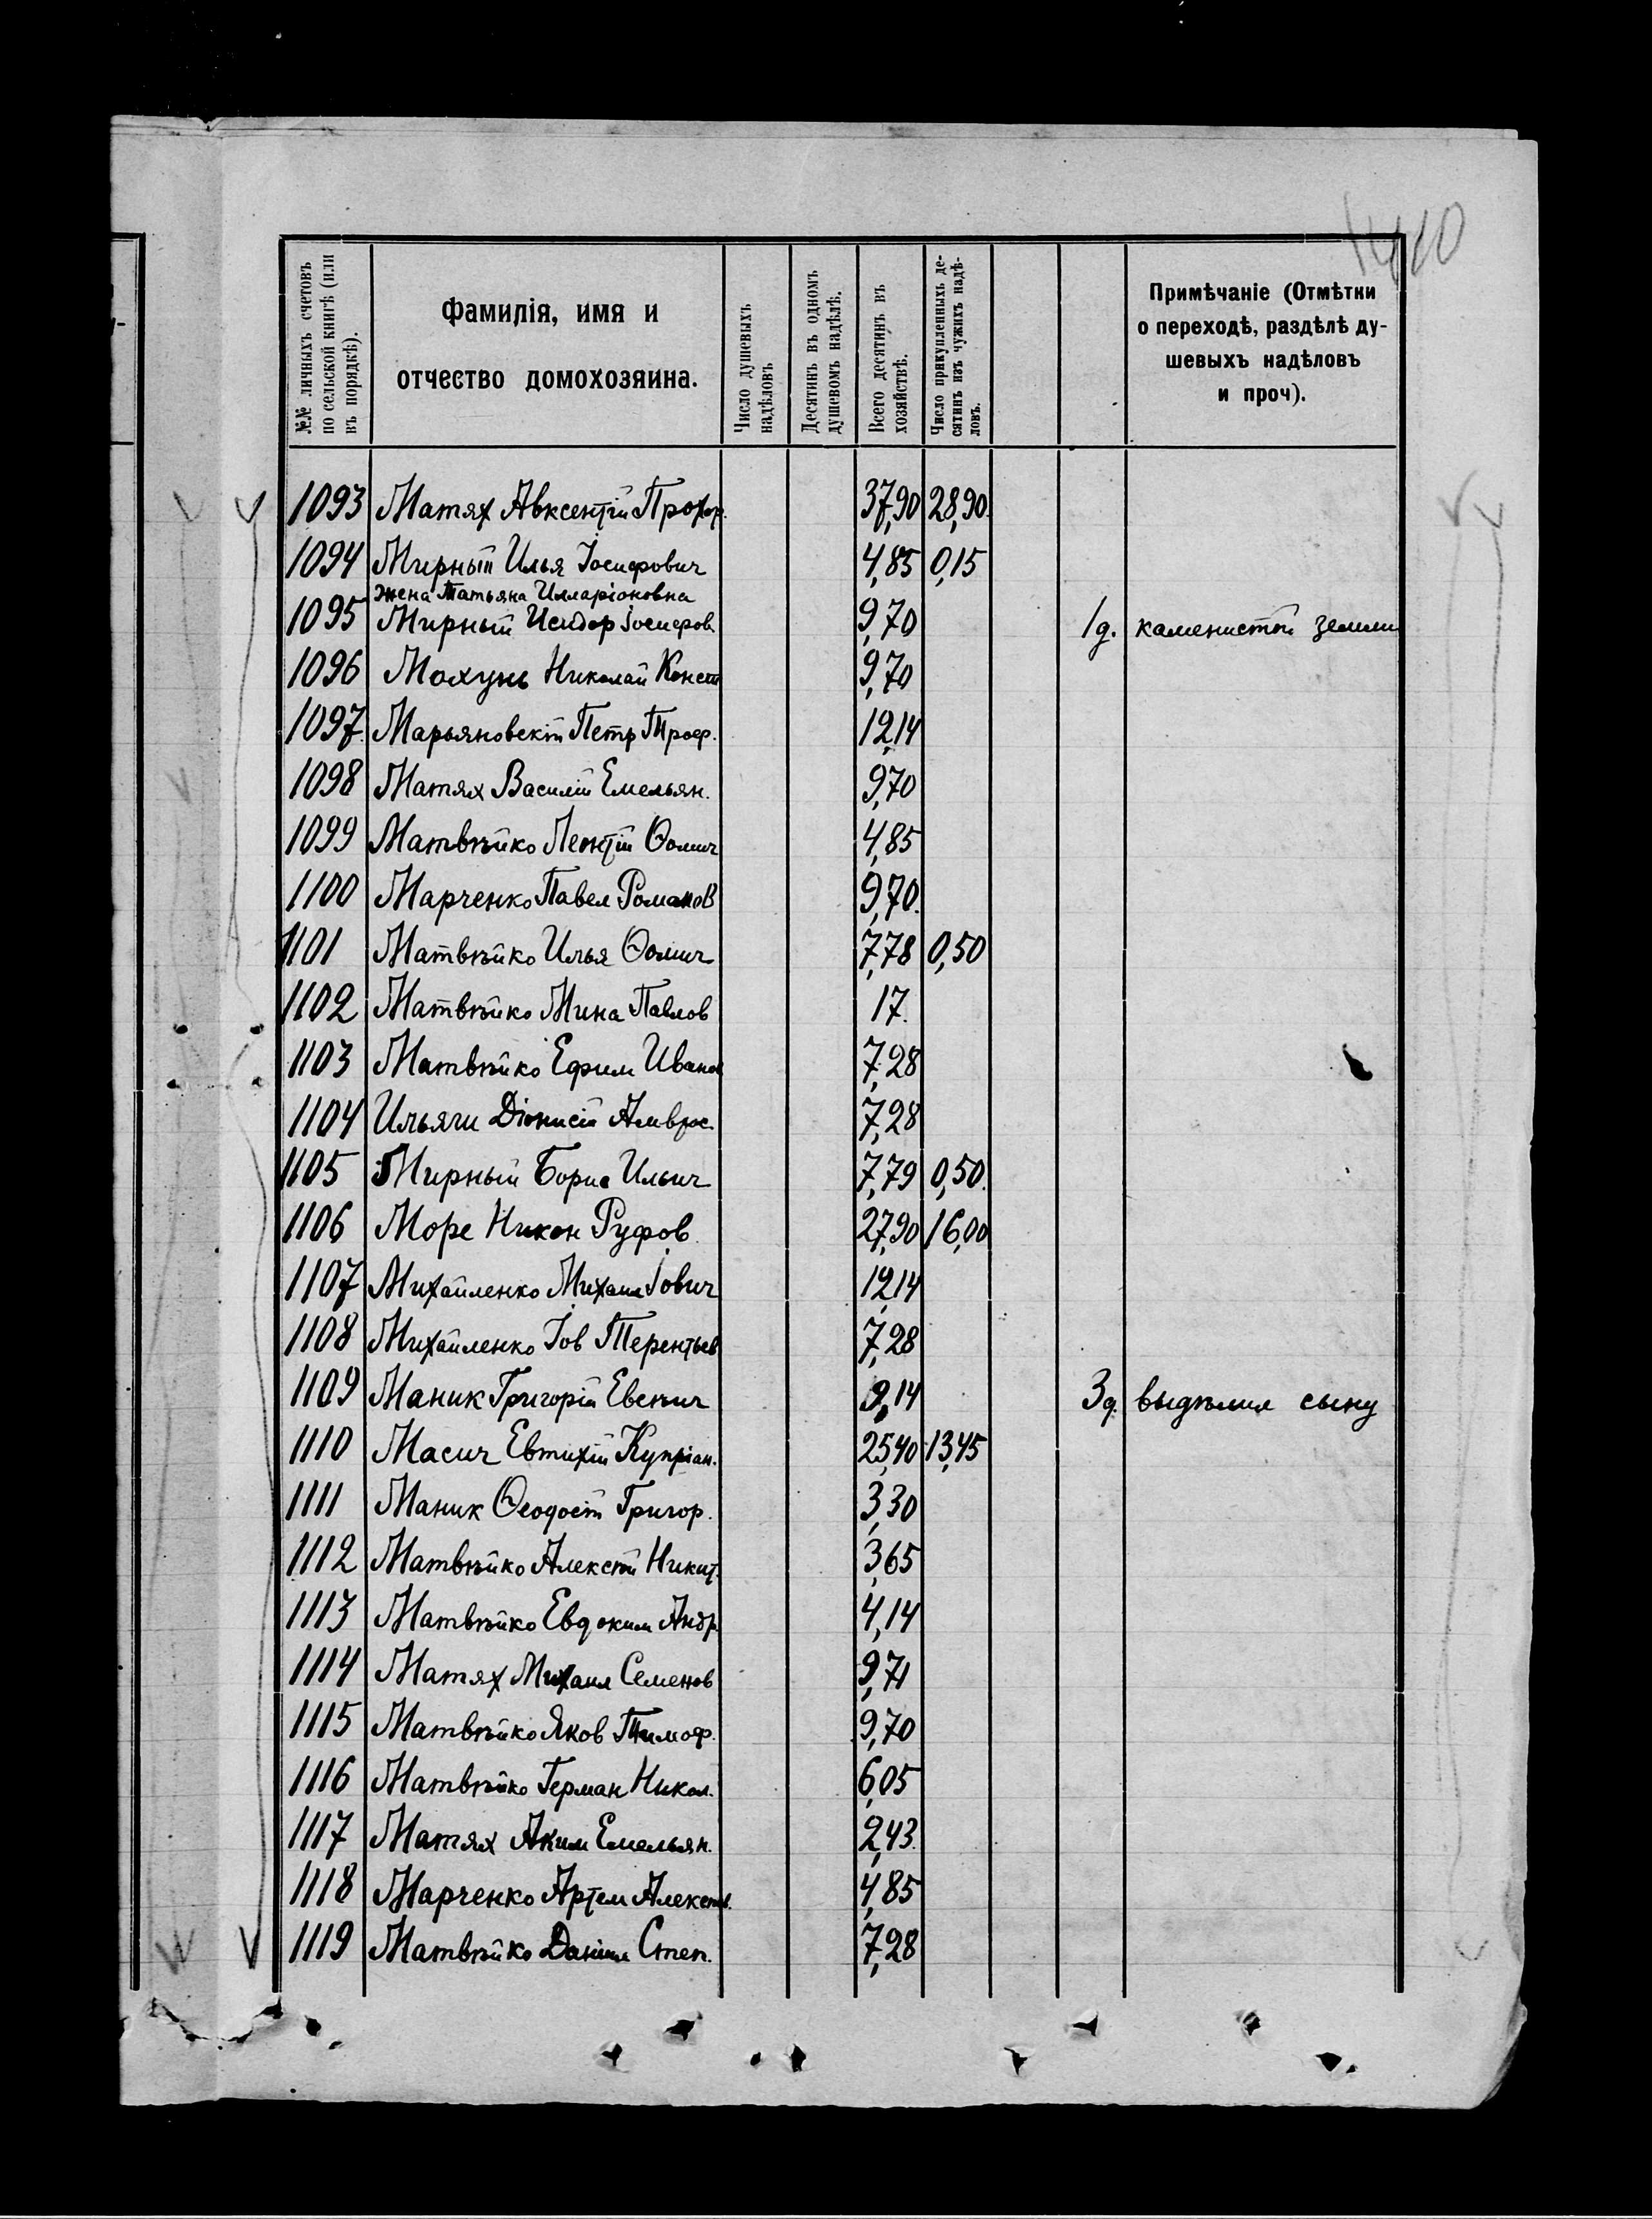 1410
№№ личныхъ счетовъ по сельской книгѣ (или въ порядкѣ).
Фамилія, имя и отчество домохозяина.
Число душевыхъ надѣловъ
Десятинъ въ одномъ душевомъ надѣлѣ.
Всего десятинъ въ хозяйствѣ.
Число прикупленныхъ десятинъ изъ чужихъ надѣловъ.
Примѣчаніе (Отмѣтки о переходѣ, раздѣлѣ душевыхъ надѣловъ и проч).
1093 Матях Авксентій Прохор. 37,90 28,90.
1094 Мирный Илья Іосифович 4,85 0,15
жена Татьяна Илларіоновна
1095 Мирный Исидор Іосифов. 9,70 1д. каменистой земли
1096 Мохунь Николай Конст 9,70
1097. Марьяновскій Петр Троф. 12,14
1098 Матях Василій Емельян. 9,70
1099 Матвѣйко Леонтій Ѳомич 4,85
1100 Марченко Павел Романов 9,70.
1101 Матвѣйко Илья Ѳомич 7,78 0,50
1102 Матвѣйко Мина Павлов 17.
1103 Матвѣйко Ефим Иванов 7,28
1104 Ильяги Діонисій Амврос. 7,28
1105 Мирный Борис Ильич 7,79 0,50.
1106 Море Никон Руфов. 27,90 16,00
1107 Михайленко Михаил Іович 12,14
1108 Михайленко Іов Терентьев 7,28
1109 Маник Григорій Евсеич 9,14 3д. выдѣлил сыну
1110 Масич Евтихій Купріан. 25,40 13,45
1111 Маник Ѳеодосій Григор. 3,30
1112 Матвѣйко Алексѣй Никит. 3,65
1113 Матвѣйко Евдоким Андр 4,14
1114 Матях Михаил Семенов 9,71
1115 Матвѣйко Яков Тимоф. 9,70
1116 Матвѣйко Герман Никол. 6,05
1117 Матях Аким Емельян. 2,43.
1118 Марченко Артем Алексѣев. 4,85
1119 Матвѣйко Даніил Степ. 7,28